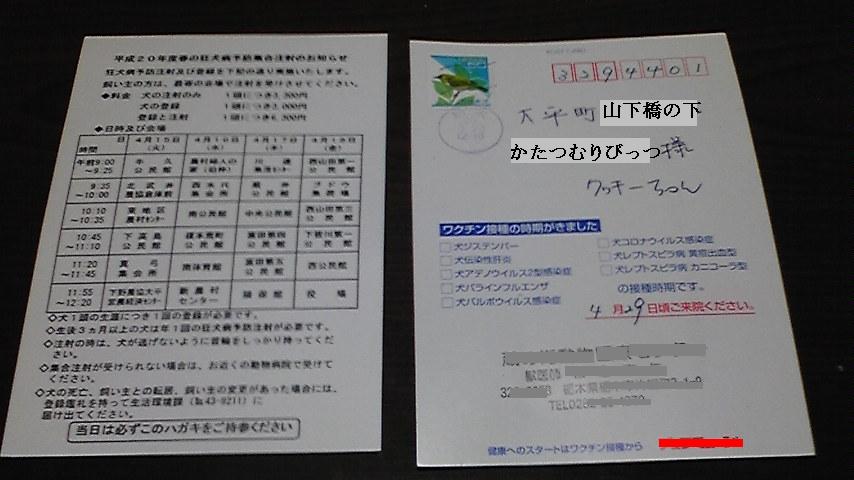 平成20年度春の狂犬病予防集合注射のお知らせ
狂犬病予防注射及び登録を下記の通り実施いたします。
飼い主の方は、最寄の会場で注射を受けさせてください。
◆料金 犬の注射のみ 1頭につき3,300円
犬の登録 1頭につき3,000円
登録と注射 1頭につき6,300円
◆日時及び会場
時間 日 4月15日(火) 4月16日(水) 4月17日(木) 4月18日(金)
午前9:00～9:25 牛久公民館 農村婦人の家 川連 西山田第一公民館
9:35～10:00 北武井農協倉庫前 西水代集会所 蔵井公民館 ブドウ集荷場
10:10～10:35 東地区農村センター 南公民館 中央公民館 西山田第三公民館
10:45～11:10 下高島公民館 榎本荒町公民館 富田第四公民館 下皆川第一公民館
11:20～11:45 真弓集会所 南体育館 富田第五公民館 西公民館
11:55～12:20 下野農協大平営農経済センター 新農村センター 隣保館 役場
◇犬1頭の生涯につき1回の登録が必要です。
◇生後3ヵ月以上の犬は年1回の狂犬病予防注射が必要です。
◇注射の時は、犬が逃げないように首輪をしっかり持ってください。
◇集合注射が受けられない場合は、お近くの動物病院で受けてください。
◇犬の死亡、飼い主との転居、飼い主の変更があった場合には、
登録鑑札を持って生活環境課(℡43-9211)に
届け出てください。
当日は必ずこのハガキをご持参ください
POST CARD
3294401
大平町 山下橋の下
かたつむりぴっつ様
クッキーちゃん
ワクチン接種の時期がきました
□犬ジステンパー
□犬伝染性肝炎
□犬アデノウイルス2型感染症
□犬パラインフルエンザ
□犬パルボウイルス感染症
□犬コロナウイルス感染症
□犬レプトスピラ病 黄疸出血型
□犬レプトスピラ病 カニコーラ型
の接種時期です。
4月29日頃ご来院ください。
獣医師
栃木県
TEL0282
健康へのスタートはワクチン接種から